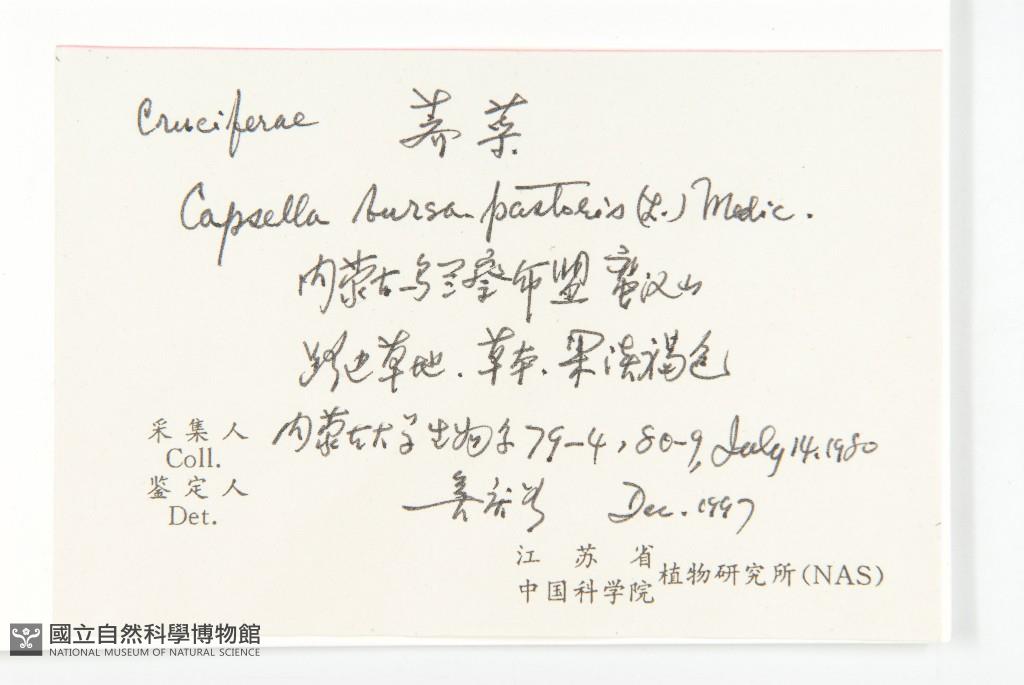 Cruciferae 荠菜
Capsella bursa-pastoris (L.) Medic.
内蒙古乌兰察布盟蛮汉山
路边草地. 草本. 果淡褐色
采集人 内蒙古大学生物系 79-4, 80-9, July 14. 1980
Coll.
鉴定人 Dec. 1997
Det.
江苏省
中国科学院 植物研究所(NAS)
國立自然科學博物館
NATIONAL MUSEUM OF NATURAL SCIENCE